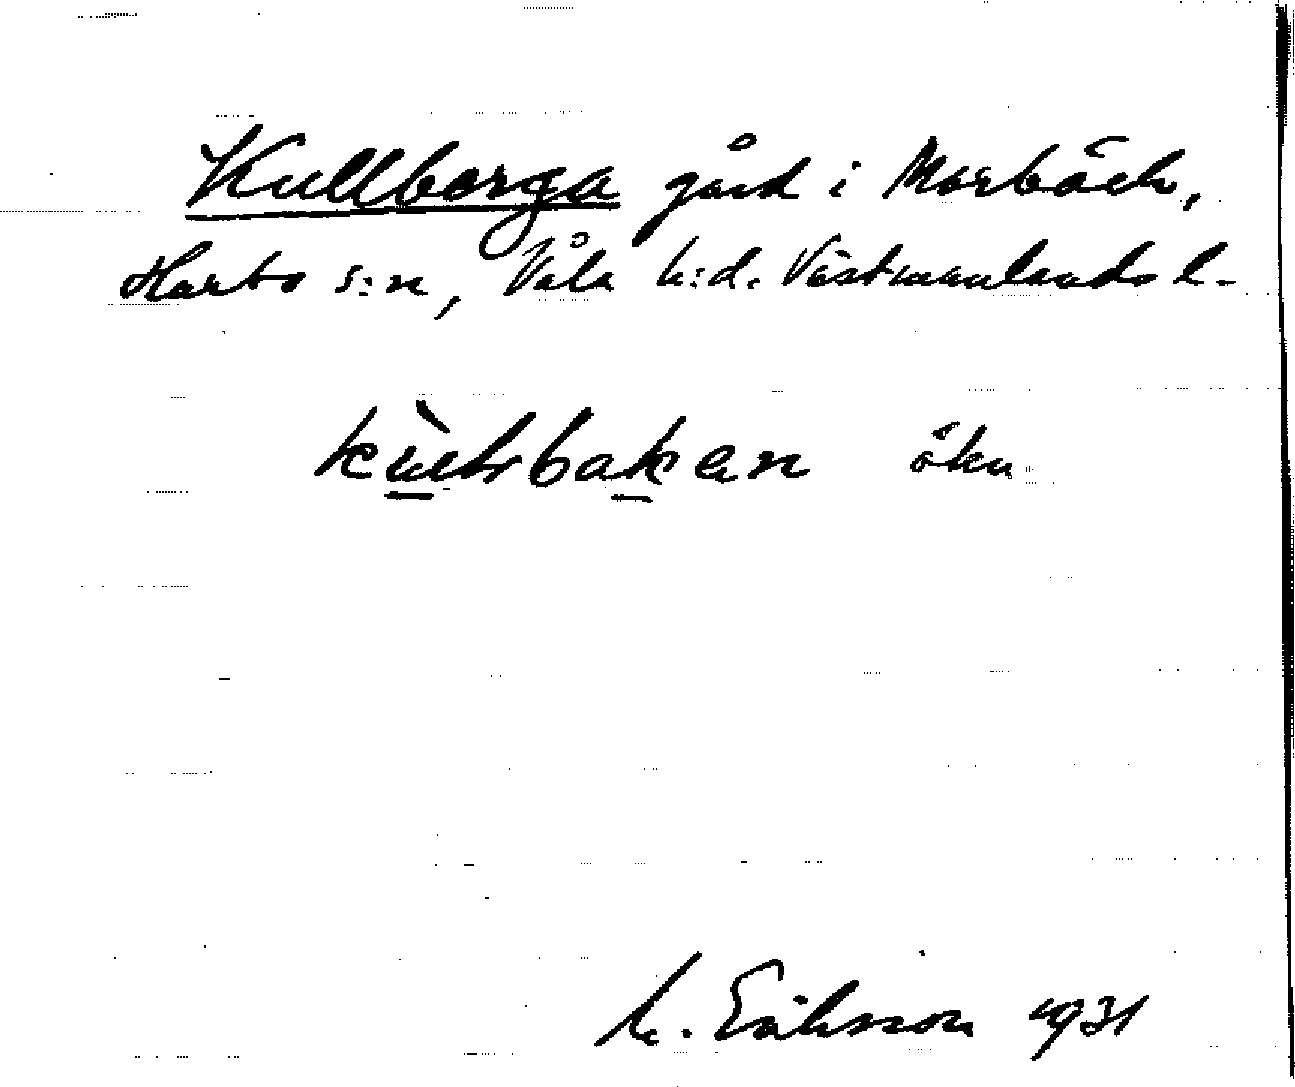 Kullberga gård i Morbäck,
Harbo s:n, Våla h:d. Västmanlands l.
öku
M. Eriksson 1931